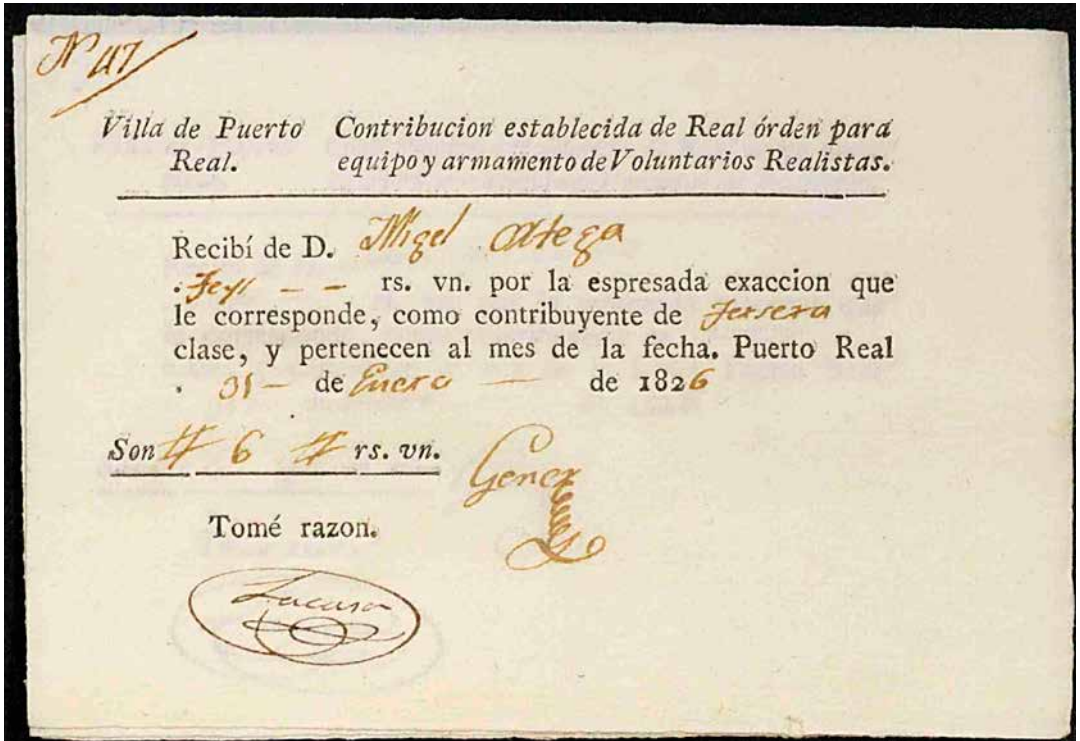 Nº 47
Villa de Puerto Real.
Contribucion establecida de Real órden para
equipo y armamento de Voluntarios Realistas.
Recibí de D. Migel Ortega
Seys — — rs. vn. por la espresada exaccion que
le corresponde, como contribuyente de Tersera
clase, y pertenecen al mes de la fecha. Puerto Real
31 — de Enero — de 1826
Son # 6 # rs. vn.
Tomé razon.